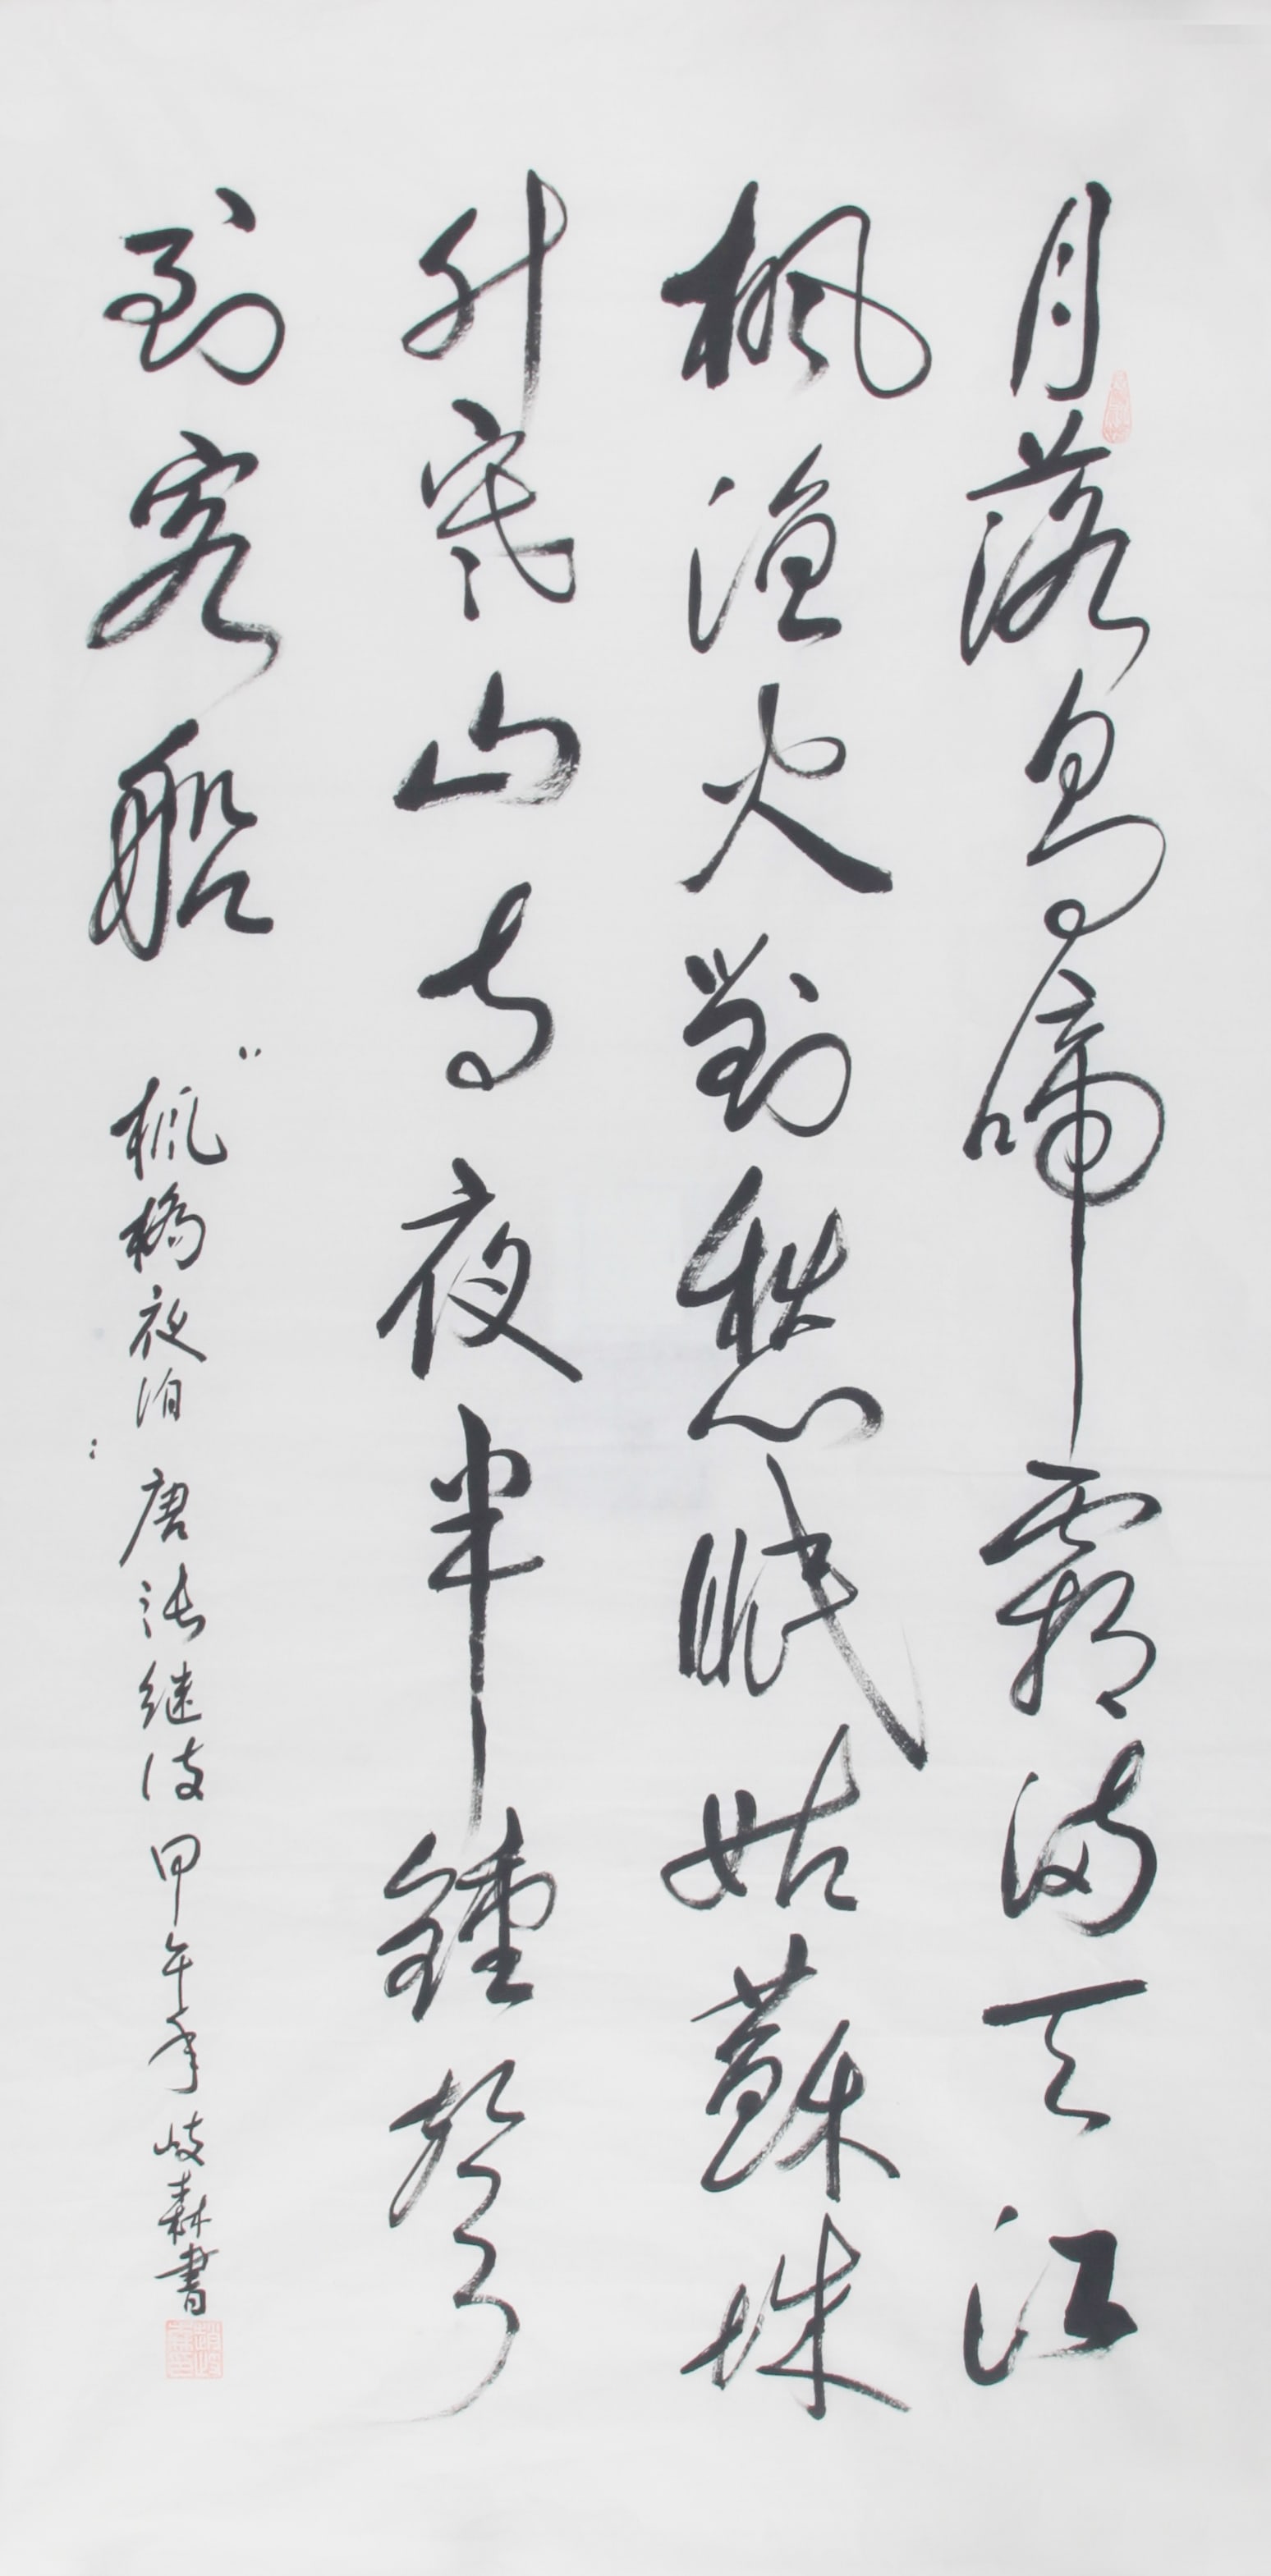 月落烏啼霜满天江
枫渔火對愁眠姑蘇城
外寒山寺夜半鍾聲
到客船
“枫橋夜泊”唐张继诗甲午年岐森書